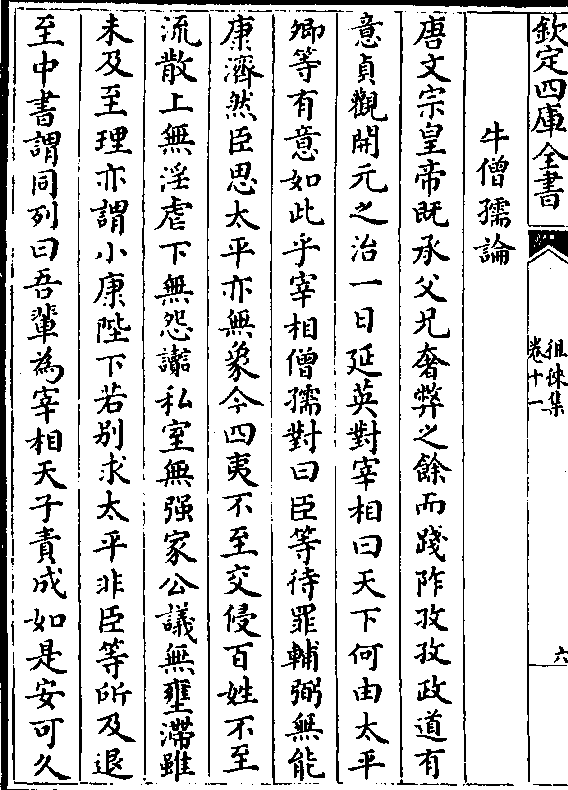 欽定四庫全書
徂徠集
卷十一
六
牛僧孺論
唐文宗皇帝既承父兄奢弊之餘而踐阼孜孜政道有
意貞觀開元之治一日延英對宰相曰天下何由太平
卿等有意如此乎宰相僧孺對曰臣等待罪輔弼無能
康濟然臣思太平亦無象今四夷不至交侵百姓不至
流散上無淫虐下無怨讟私室無强家公議無壅滯雖
未及至理亦謂小康陛下若别求太平非臣等所及退
至中書謂同列曰吾輩為宰相天子責成如是安可久